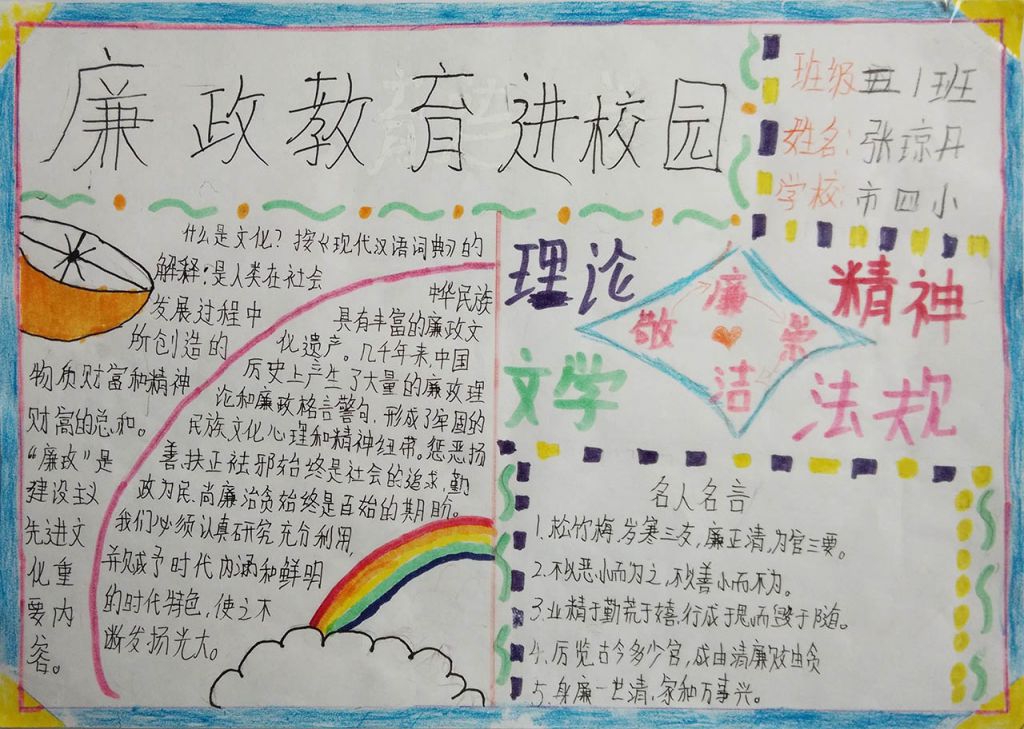 廉政教育进校园
班级 五1班
姓名:张琼丹
学校:市四小
什么是文化?按《现代汉语词典》的
解释:是人类在社会
发展过程中
所创造的
物质财富和精神
财富的总和。
“廉政”是
建设主义
先进文
化重
要内
容。
中华民族
具有丰富的廉政文
化遗产。几千年来,中国
历史上产生了大量的廉政理
论和廉政格言警句,形成了牢固的
民族文化心理和精神纽带。惩恶扬
善,扶正祛邪始终是社会的追求,勤
政为民,尚廉治贪始终是百姓的期盼。
我们必须认真研究,充分利用,
并赋予时代内涵和鲜明
的时代特色,使之不
断发扬光大。
理论
精神
廉
敬
荣
洁
文学
法规
名人名言
1.松竹梅,岁寒三友,廉正清,为官三要。
2.不以恶小而为之,不以善小而不为。
3.业精于勤荒于嬉,行成于思而毁于随。
4.历览古今多少官,成由清廉败由贪
5.身廉一世清,家和万事兴。